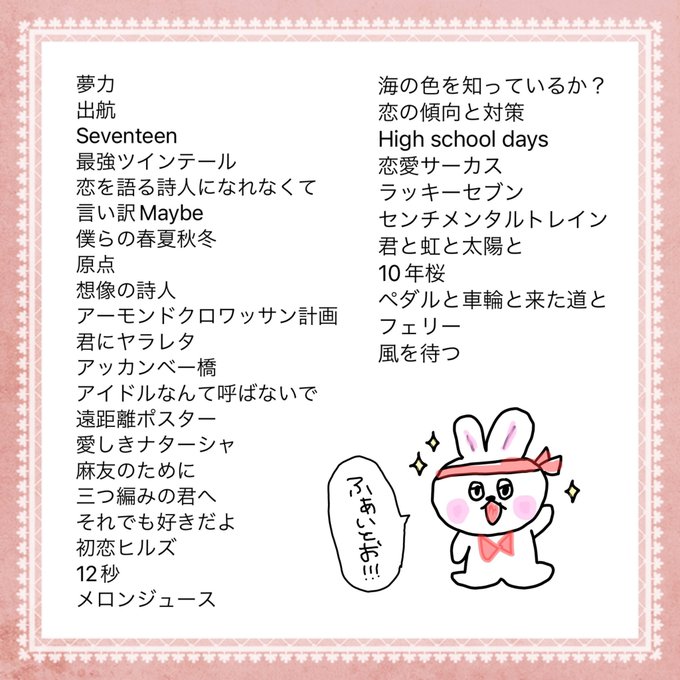 夢力
出航
Seventeen
最強ツインテール
恋を語る詩人になれなくて
言い訳Maybe
僕らの春夏秋冬
原点
想像の詩人
アーモンドクロワッサン計画
君にヤラレタ
アッカンベー橋
アイドルなんて呼ばないで
遠距離ポスター
愛しきナターシャ
麻友のために
三つ編みの君へ
それでも好きだよ
初恋ヒルズ
12秒
メロンジュース
海の色を知っているか?
恋の傾向と対策
High school days
恋愛サーカス
ラッキーセブン
センチメンタルトレイン
君と虹と太陽と
10年桜
ペダルと車輪と来た道と
フェリー
風を待つ
ふぁいとぉ!!!